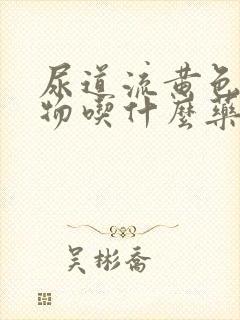 尿道流黄色
物喫什麼藥
吴彬喬